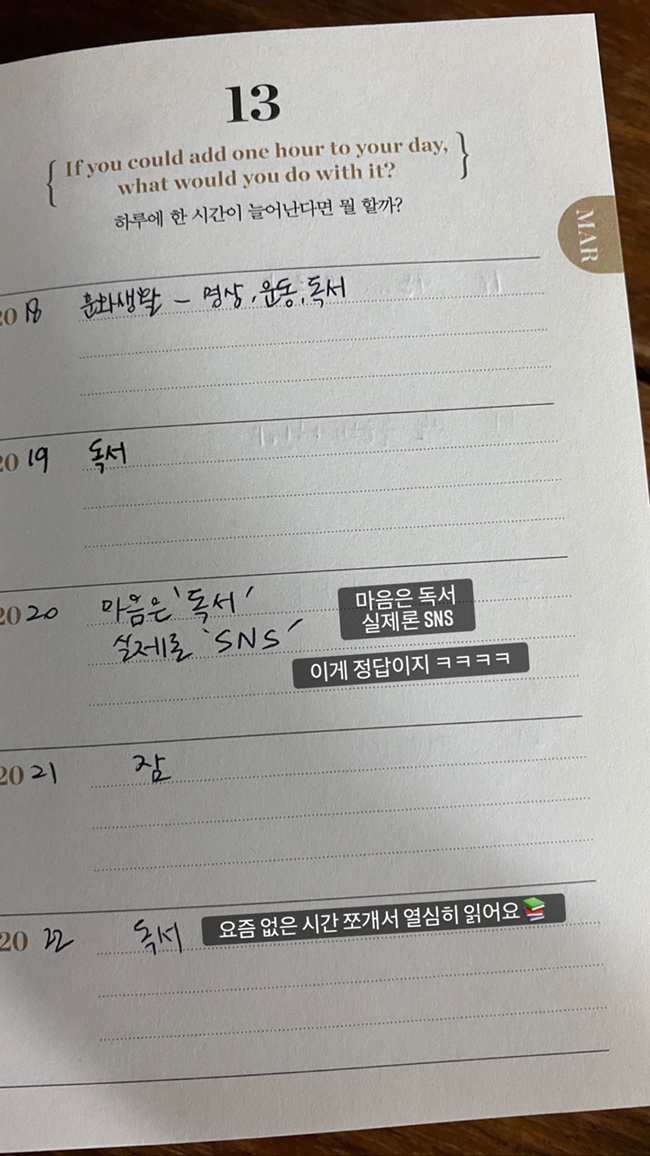 13
If you could add one hour to your day,
what would you do with it?
하루에 한 시간이 늘어난다면 뭘 할까?
MAR
2018 문화생활 - 명상, 운동, 독서
2019 독서
2020 마음은 '독서'
실제론 'SNS'
마음은 독서
실제론 SNS
이게 정답이지 ㅋㅋㅋㅋ
2021 잠
2022 독서
요즘 없은 시간 쪼개서 열심히 읽어요📚